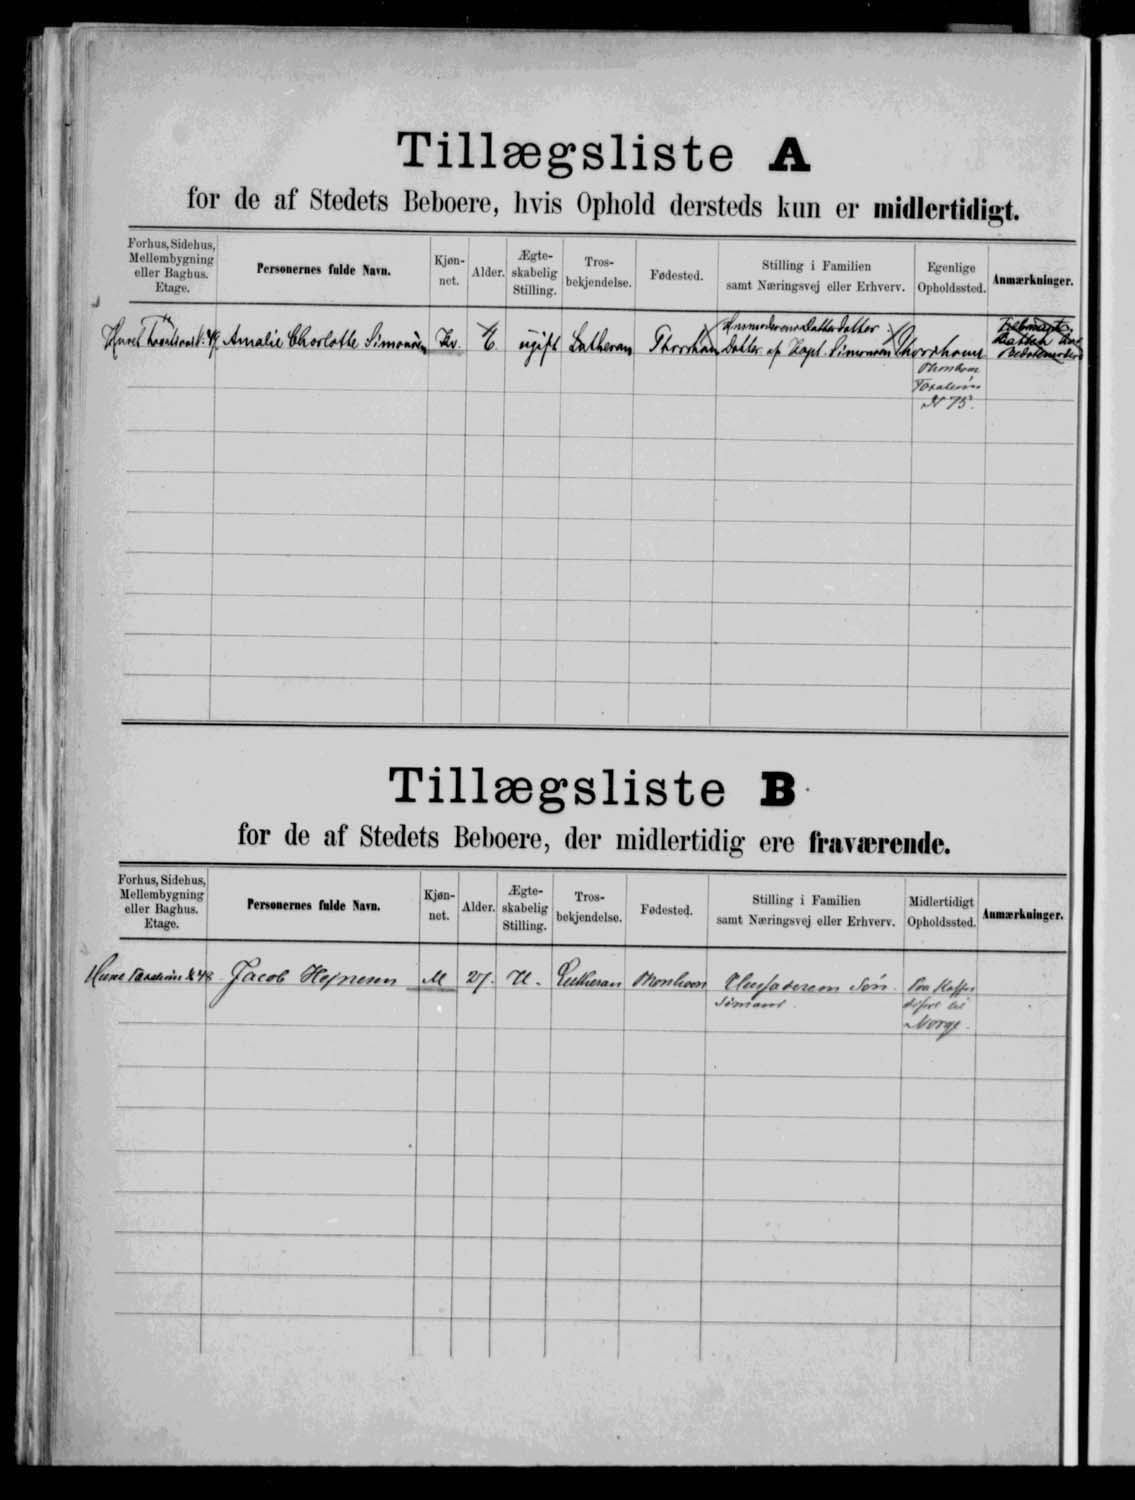 Tillægsliste A
for de af Stedets Beboere, hvis Ophold dersteds kun er midlertidigt.
Forhus, Sidehus, Mellembygning eller Baghus. Etage.
Personernes fulde Navn.
Kjøn-net.
Alder.
Ægte-skabelig Stilling.
Tros-bekjendelse.
Fødested.
Stilling i Familien samt Næringsvej eller Erhverv.
Egenlige Opholdssted.
Anmærkninger.
Huset Amalie Charlotte Simonsen Kv. ugift Lutheran Thorshavn Datter af Kapt. Simonsen Thorshavn
Husmoderens Datterdatter
No 75.
Tillægsliste B
for de af Stedets Beboere, der midlertidig ere fraværende.
Forhus, Sidehus, Mellembygning eller Baghus. Etage.
Personernes fulde Navn.
Kjøn-net.
Alder.
Ægte-skabelig Stilling.
Tros-bekjendelse.
Fødested.
Stilling i Familien samt Næringsvej eller Erhverv.
Midlertidigt Opholdssted.
Anmærkninger.
Huset No 48 Jacob M 27. U. Lutheran Husfaderens Søn.
Sømand.
til
Norge.